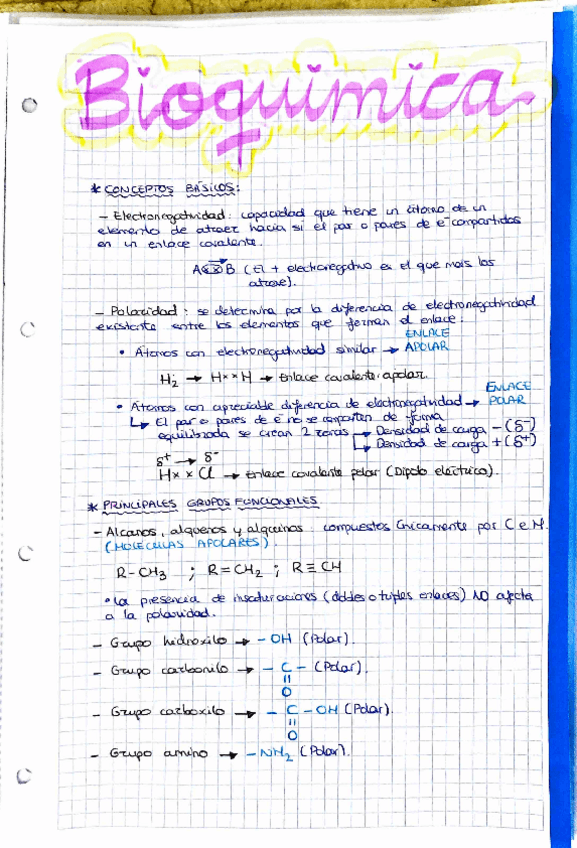 Bioquímica
* CONCEPTOS BÁSICOS:
- Electronegatividad: capacidad que tiene un átomo de un
elemento de atraer hacia sí el par o pares de e⁻ compartidos
en un enlace covalente.
A B (El + electronegativo es el que más los
atrae).
- Polaridad: se determina por la diferencia de electronegatividad
existente entre los elementos que forman el enlace:
• Átomos con electronegatividad similar → ENLACE
APOLAR
H₂ → H×× H → Enlace covalente apolar.
• Átomos con apreciable diferencia de electronegatividad → ENLACE
POLAR
↳ El par o pares de e⁻ no se comparten de forma
equilibrada se crean 2 zonas → Densidad de carga - (δ⁻)
↳ Densidad de carga + (δ⁺)
δ⁺ → δ⁻
H× × Cl → Enlace covalente polar (Dipolo eléctrico).
* PRINCIPALES GRUPOS FUNCIONALES
- Alcanos, alquenos y alquinos: compuestos únicamente por C e H.
(MOLÉCULAS APOLARES)
R-CH₃ ; R=CH₂ ; R≡CH
• La presencia de insaturaciones (dobles o triples enlaces) NO afecta
a la polaridad.
- Grupo hidroxilo → -OH (Polar).
- Grupo carbonilo → - C - (Polar).
=
O
- Grupo carboxilo → - C - OH (Polar).
=
O
- Grupo amino → -NH₂ (Polar).